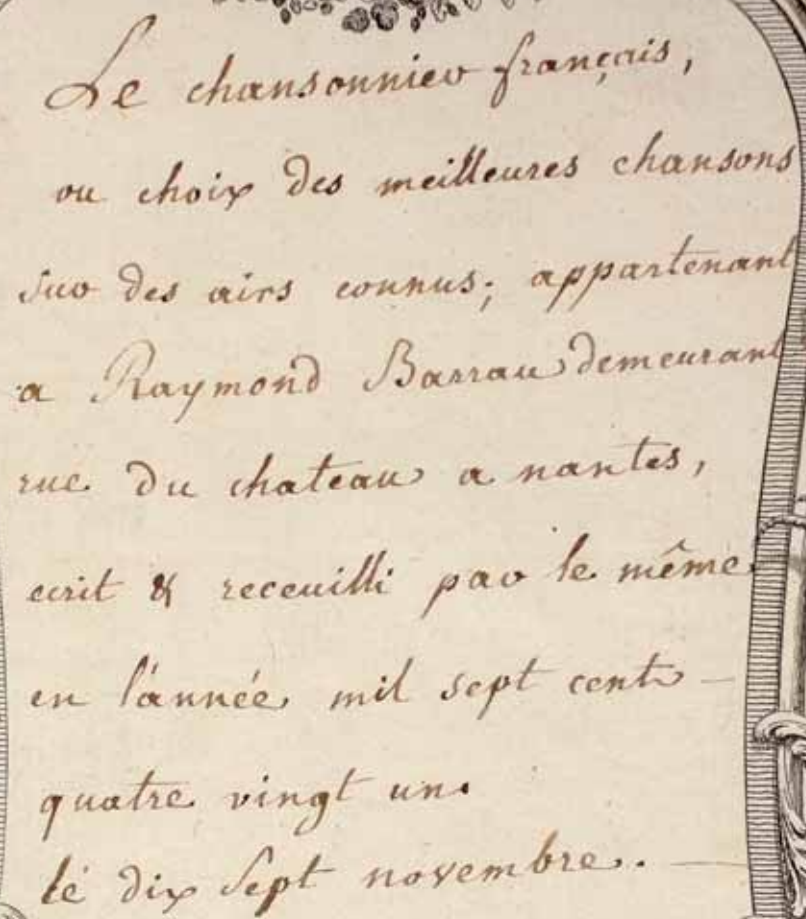 Le chansonnier français,
ou choix des meilleures chansons
sur des airs connus; appartenant
a Raymond Barrau demeurant
rue du chateau a nantes,
ecrit & receuilli par le même
en l'année mil sept cent -
quatre vingt un.
lé dix sept novembre. -